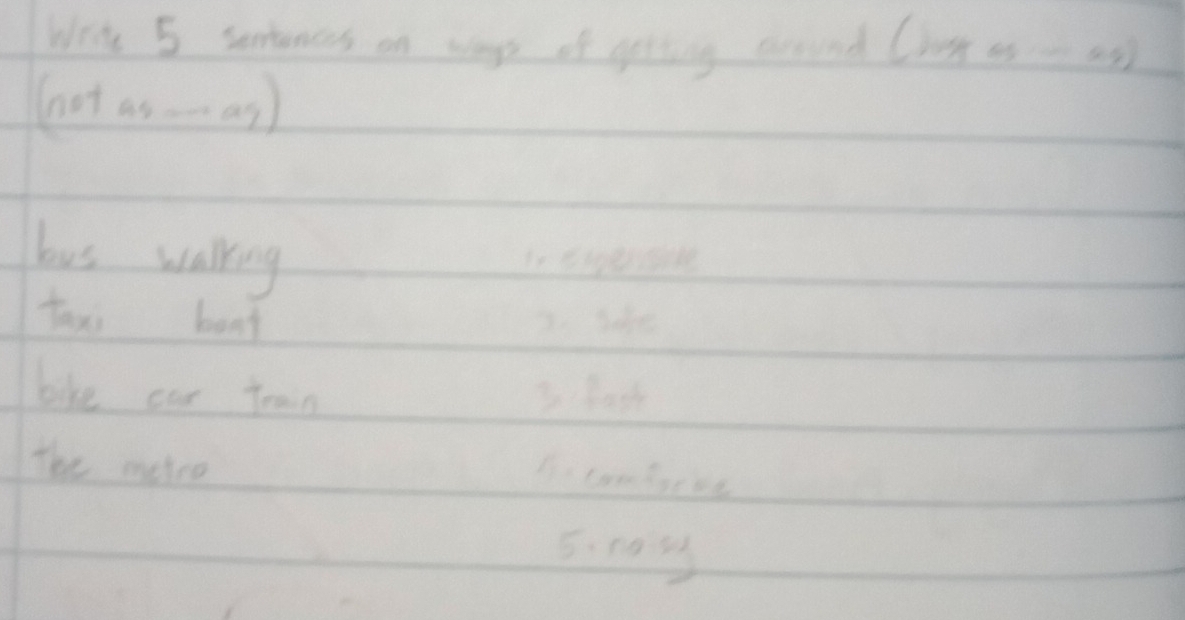 Write 5 sentences on ways of getting around (just as — as)
(not as — as)
bus walking 1. expensive
taxi boat 2. safe
bike car train 3. fast
the metro 4.
5. noisy